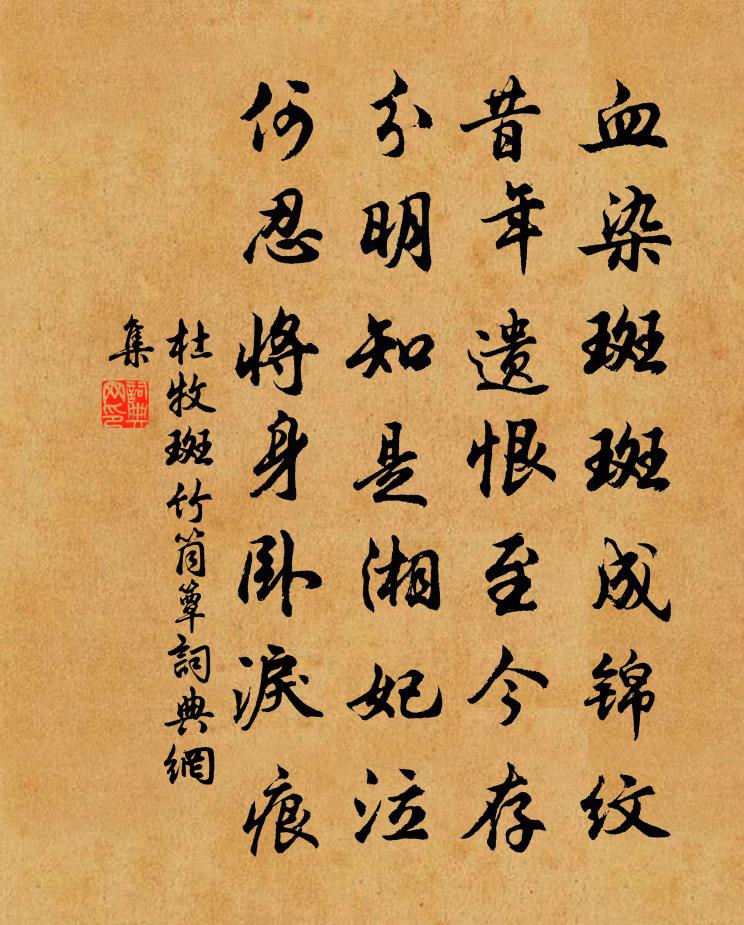 血染斑斑成锦纹
昔年遗恨至今存
分明知是湘妃泣
何忍将身卧淚痕
杜牧斑竹筒簟詞典網
集
詞典
网印